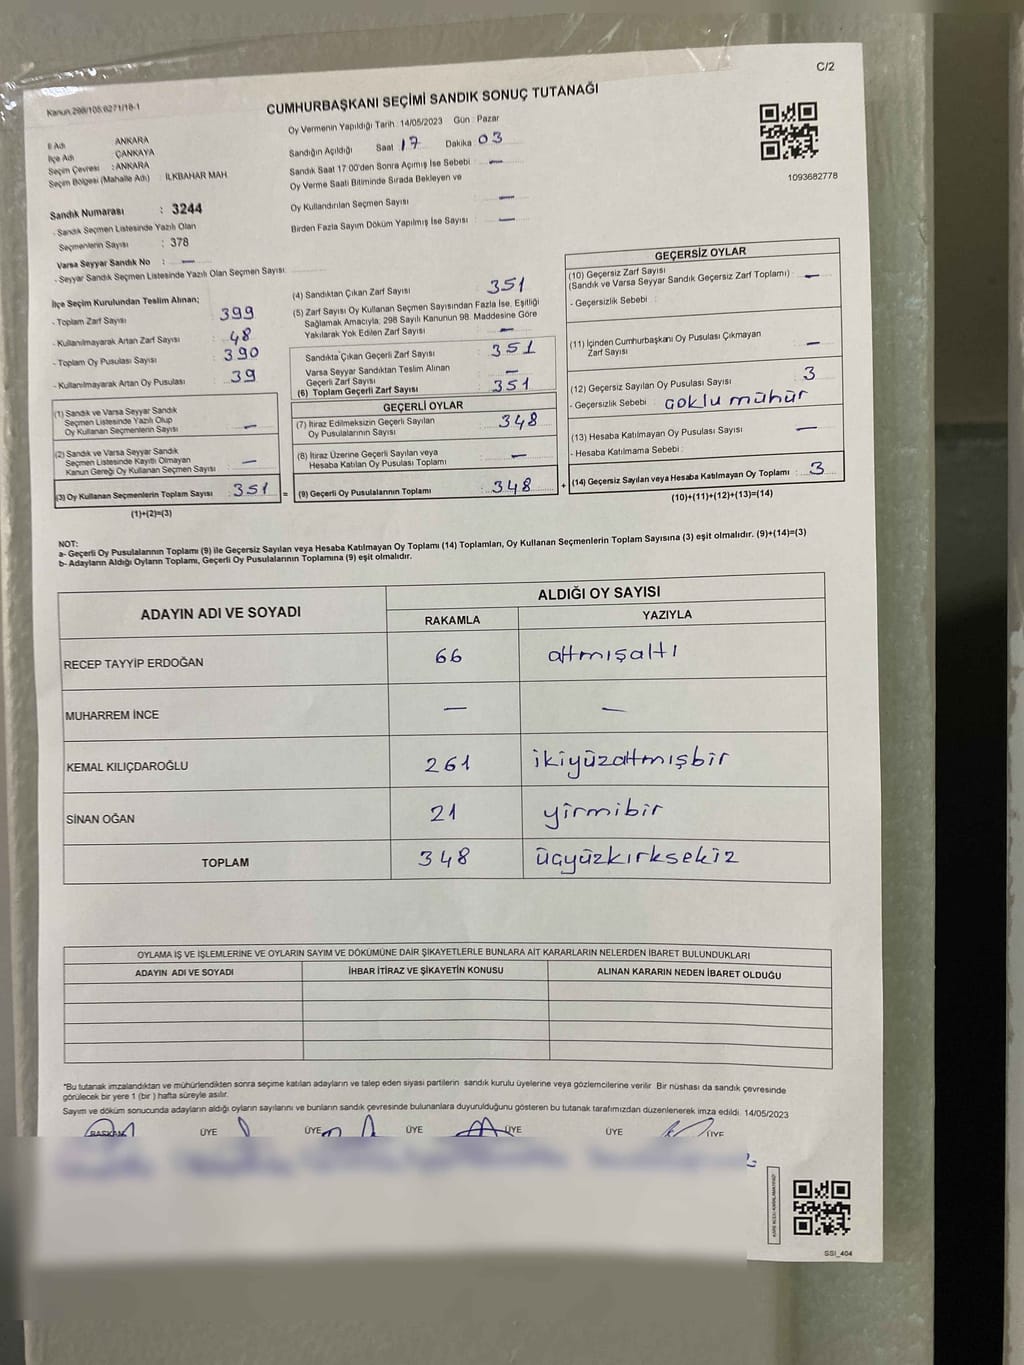 C/2
Kanun.298/105.6271/18-1
CUMHURBAŞKANI SEÇİMİ SANDIK SONUÇ TUTANAĞI
İl Adı ANKARA
İlçe Adı ÇANKAYA
Seçim Çevresi : ANKARA
Seçim Bölgesi (Mahalle Adı) : İLKBAHAR MAH.
Oy Vermenin Yapıldığı Tarih : 14/05/2023 Gün : Pazar
Sandığın Açıldığı Saat 17 Dakika 03
Sandık Saat 17:00'den Sonra Açımış İse Sebebi : —
Oy Verme Saati Bitiminde Sırada Bekleyen ve
Oy Kullandırılan Seçmen Sayısı : —
Birden Fazla Sayım Döküm Yapılmış İse Sayısı : —
1093682778
Sandık Numarası : 3244
- Sandık Seçmen Listesinde Yazılı Olan
Seçmenlerin Sayısı : 378
Varsa Seyyar Sandık No : —
- Seyyar Sandık Seçmen Listesinde Yazılı Olan Seçmen Sayısı:
İlçe Seçim Kurulundan Teslim Alınan;
- Toplam Zarf Sayısı : 399
- Kullanılmayarak Artan Zarf Sayısı : 48
- Toplam Oy Pusulası Sayısı : 390
- Kullanılmayarak Artan Oy Pusulası : 39
(1) Sandık ve Varsa Seyyar Sandık
Seçmen Listesinde Yazılı Olup
Oy Kullanan Seçmenlerin Sayısı : —
(2) Sandık ve Varsa Seyyar Sandık
Seçmen Listesinde Kayıtlı Olmayan
Kanun Gereği Oy Kullanan Seçmen Sayısı : —
(3) Oy Kullanan Seçmenlerin Toplam Sayısı : 351 =
(1)+(2)=(3)
(4) Sandıktan Çıkan Zarf Sayısı : 351
(5) Zarf Sayısı Oy Kullanan Seçmen Sayısından Fazla İse, Eşitliği
Sağlamak Amacıyla, 298 Sayılı Kanunun 98. Maddesine Göre
Yakılarak Yok Edilen Zarf Sayısı : —
Sandıkta Çıkan Geçerli Zarf Sayısı : 351
Varsa Seyyar Sandıktan Teslim Alınan
Geçerli Zarf Sayısı : —
(6) Toplam Geçerli Zarf Sayısı : 351
GEÇERLİ OYLAR
(7) İtiraz Edilmeksizin Geçerli Sayılan
Oy Pusulalarının Sayısı : 348
(8) İtiraz Üzerine Geçerli Sayılan veya
Hesaba Katılan Oy Pusulası Toplamı : —
(9) Geçerli Oy Pusulalarının Toplamı : 348 +
GEÇERSİZ OYLAR
(10) Geçersiz Zarf Sayısı
(Sandık ve Varsa Seyyar Sandık Geçersiz Zarf Toplamı) : —
- Geçersizlik Sebebi :
(11) İçinden Cumhurbaşkanı Oy Pusulası Çıkmayan
Zarf Sayısı : —
(12) Geçersiz Sayılan Oy Pusulası Sayısı : 3
- Geçersizlik Sebebi : çoklu mühür
(13) Hesaba Katılmayan Oy Pusulası Sayısı : —
- Hesaba Katılmama Sebebi :
(14) Geçersiz Sayılan veya Hesaba Katılmayan Oy Toplamı : 3
(10)+(11)+(12)+(13)=(14)
NOT:
a- Geçerli Oy Pusulalarının Toplamı (9) ile Geçersiz Sayılan veya Hesaba Katılmayan Oy Toplamı (14) Toplamları, Oy Kullanan Seçmenlerin Toplam Sayısına (3) eşit olmalıdır. (9)+(14)=(3)
b- Adayların Aldığı Oyların Toplamı, Geçerli Oy Pusulalarının Toplamına (9) eşit olmalıdır.
ADAYIN ADI VE SOYADI ALDIĞI OY SAYISI
RAKAMLA YAZIYLA
RECEP TAYYİP ERDOĞAN 66 altmışaltı
MUHARREM İNCE — —
KEMAL KILIÇDAROĞLU 261 ikiyüzaltmışbir
SİNAN OĞAN 21 yirmibir
TOPLAM 348 üçyüzkırksekiz
OYLAMA İŞ VE İŞLEMLERİNE VE OYLARIN SAYIM VE DÖKÜMÜNE DAİR ŞİKAYETLERLE BUNLARA AİT KARARLARIN NELERDEN İBARET BULUNDUKLARI
ADAYIN ADI VE SOYADI İHBAR İTİRAZ VE ŞİKAYETİN KONUSU ALINAN KARARIN NEDEN İBARET OLDUĞU
*Bu tutanak imzalandıktan ve mühürlendikten sonra seçime katılan adayların ve talep eden siyasi partilerin sandık kurulu üyelerine veya gözlemcilerine verilir. Bir nüshası da sandık çevresinde
görülecek bir yere 1 (bir) hafta süreyle asılır.
Sayım ve döküm sonucunda adayların aldığı oyların sayılarını ve bunların sandık çevresinde bulunanlara duyurulduğunu gösteren bu tutanak tarafımızdan düzenlenerek imza edildi. 14/05/2023
BAŞKAN ÜYE ÜYE ÜYE ÜYE ÜYE ÜYE
SSI_404